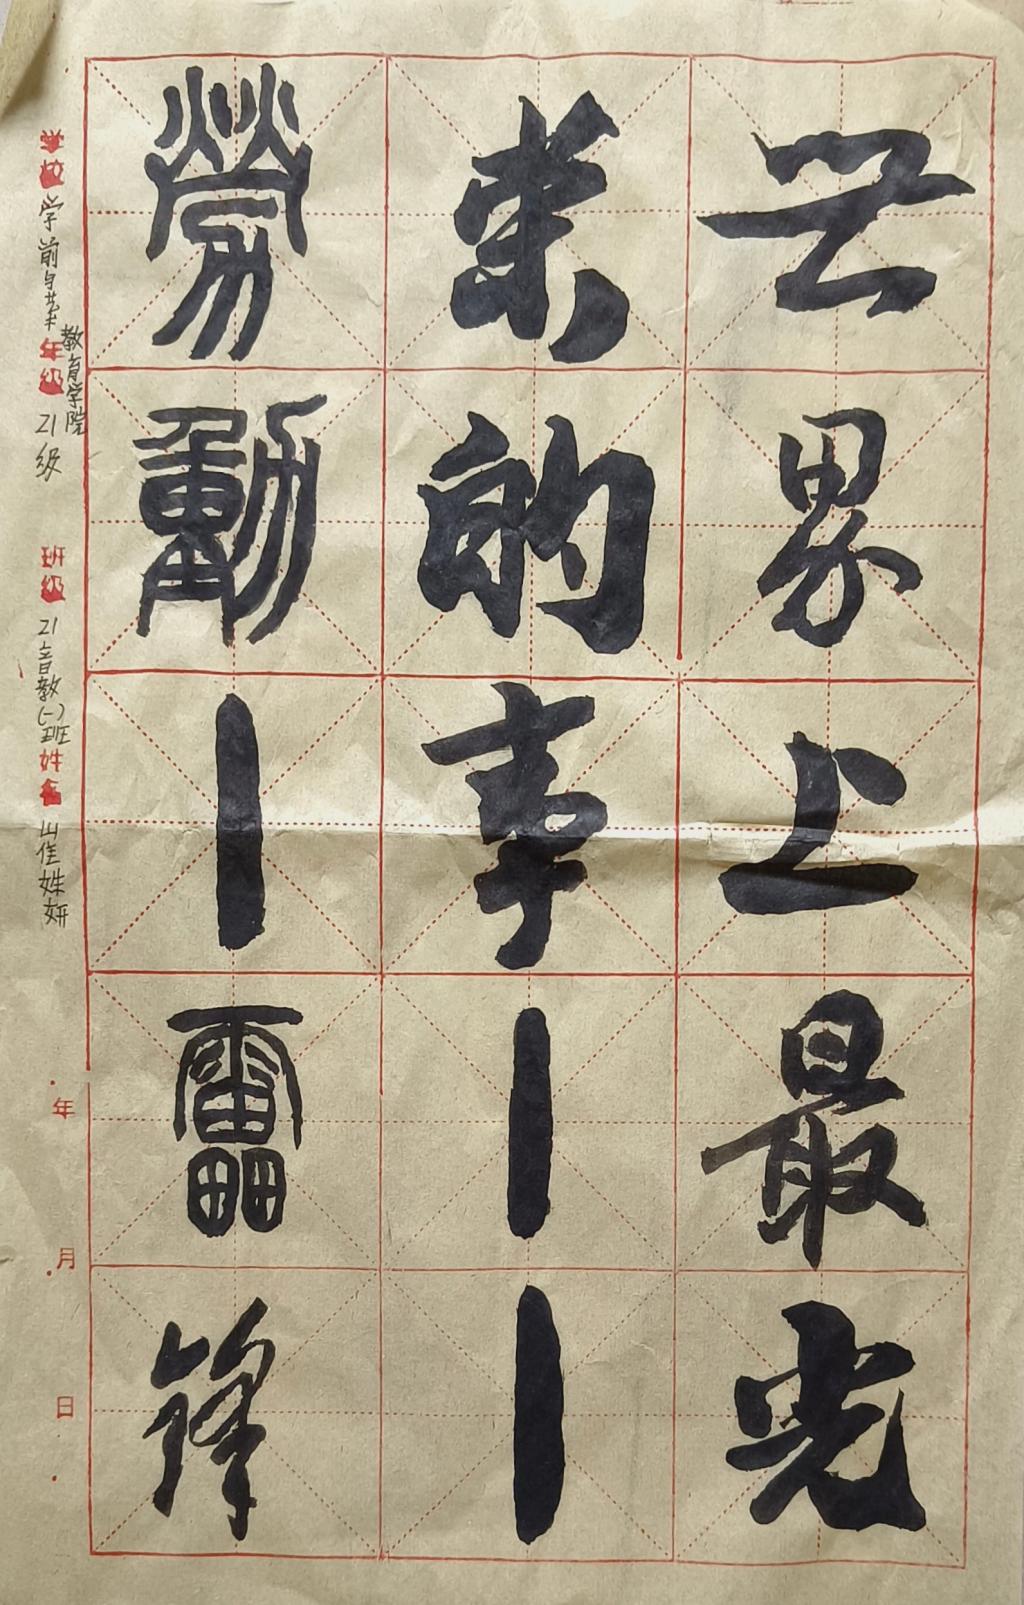 世界上最光
荣的事——
勞動—雷锋
学校 学前与艺术教育学院
年级 21级
班级 21音教(一)班
姓名 崔姝妍
年 月 日